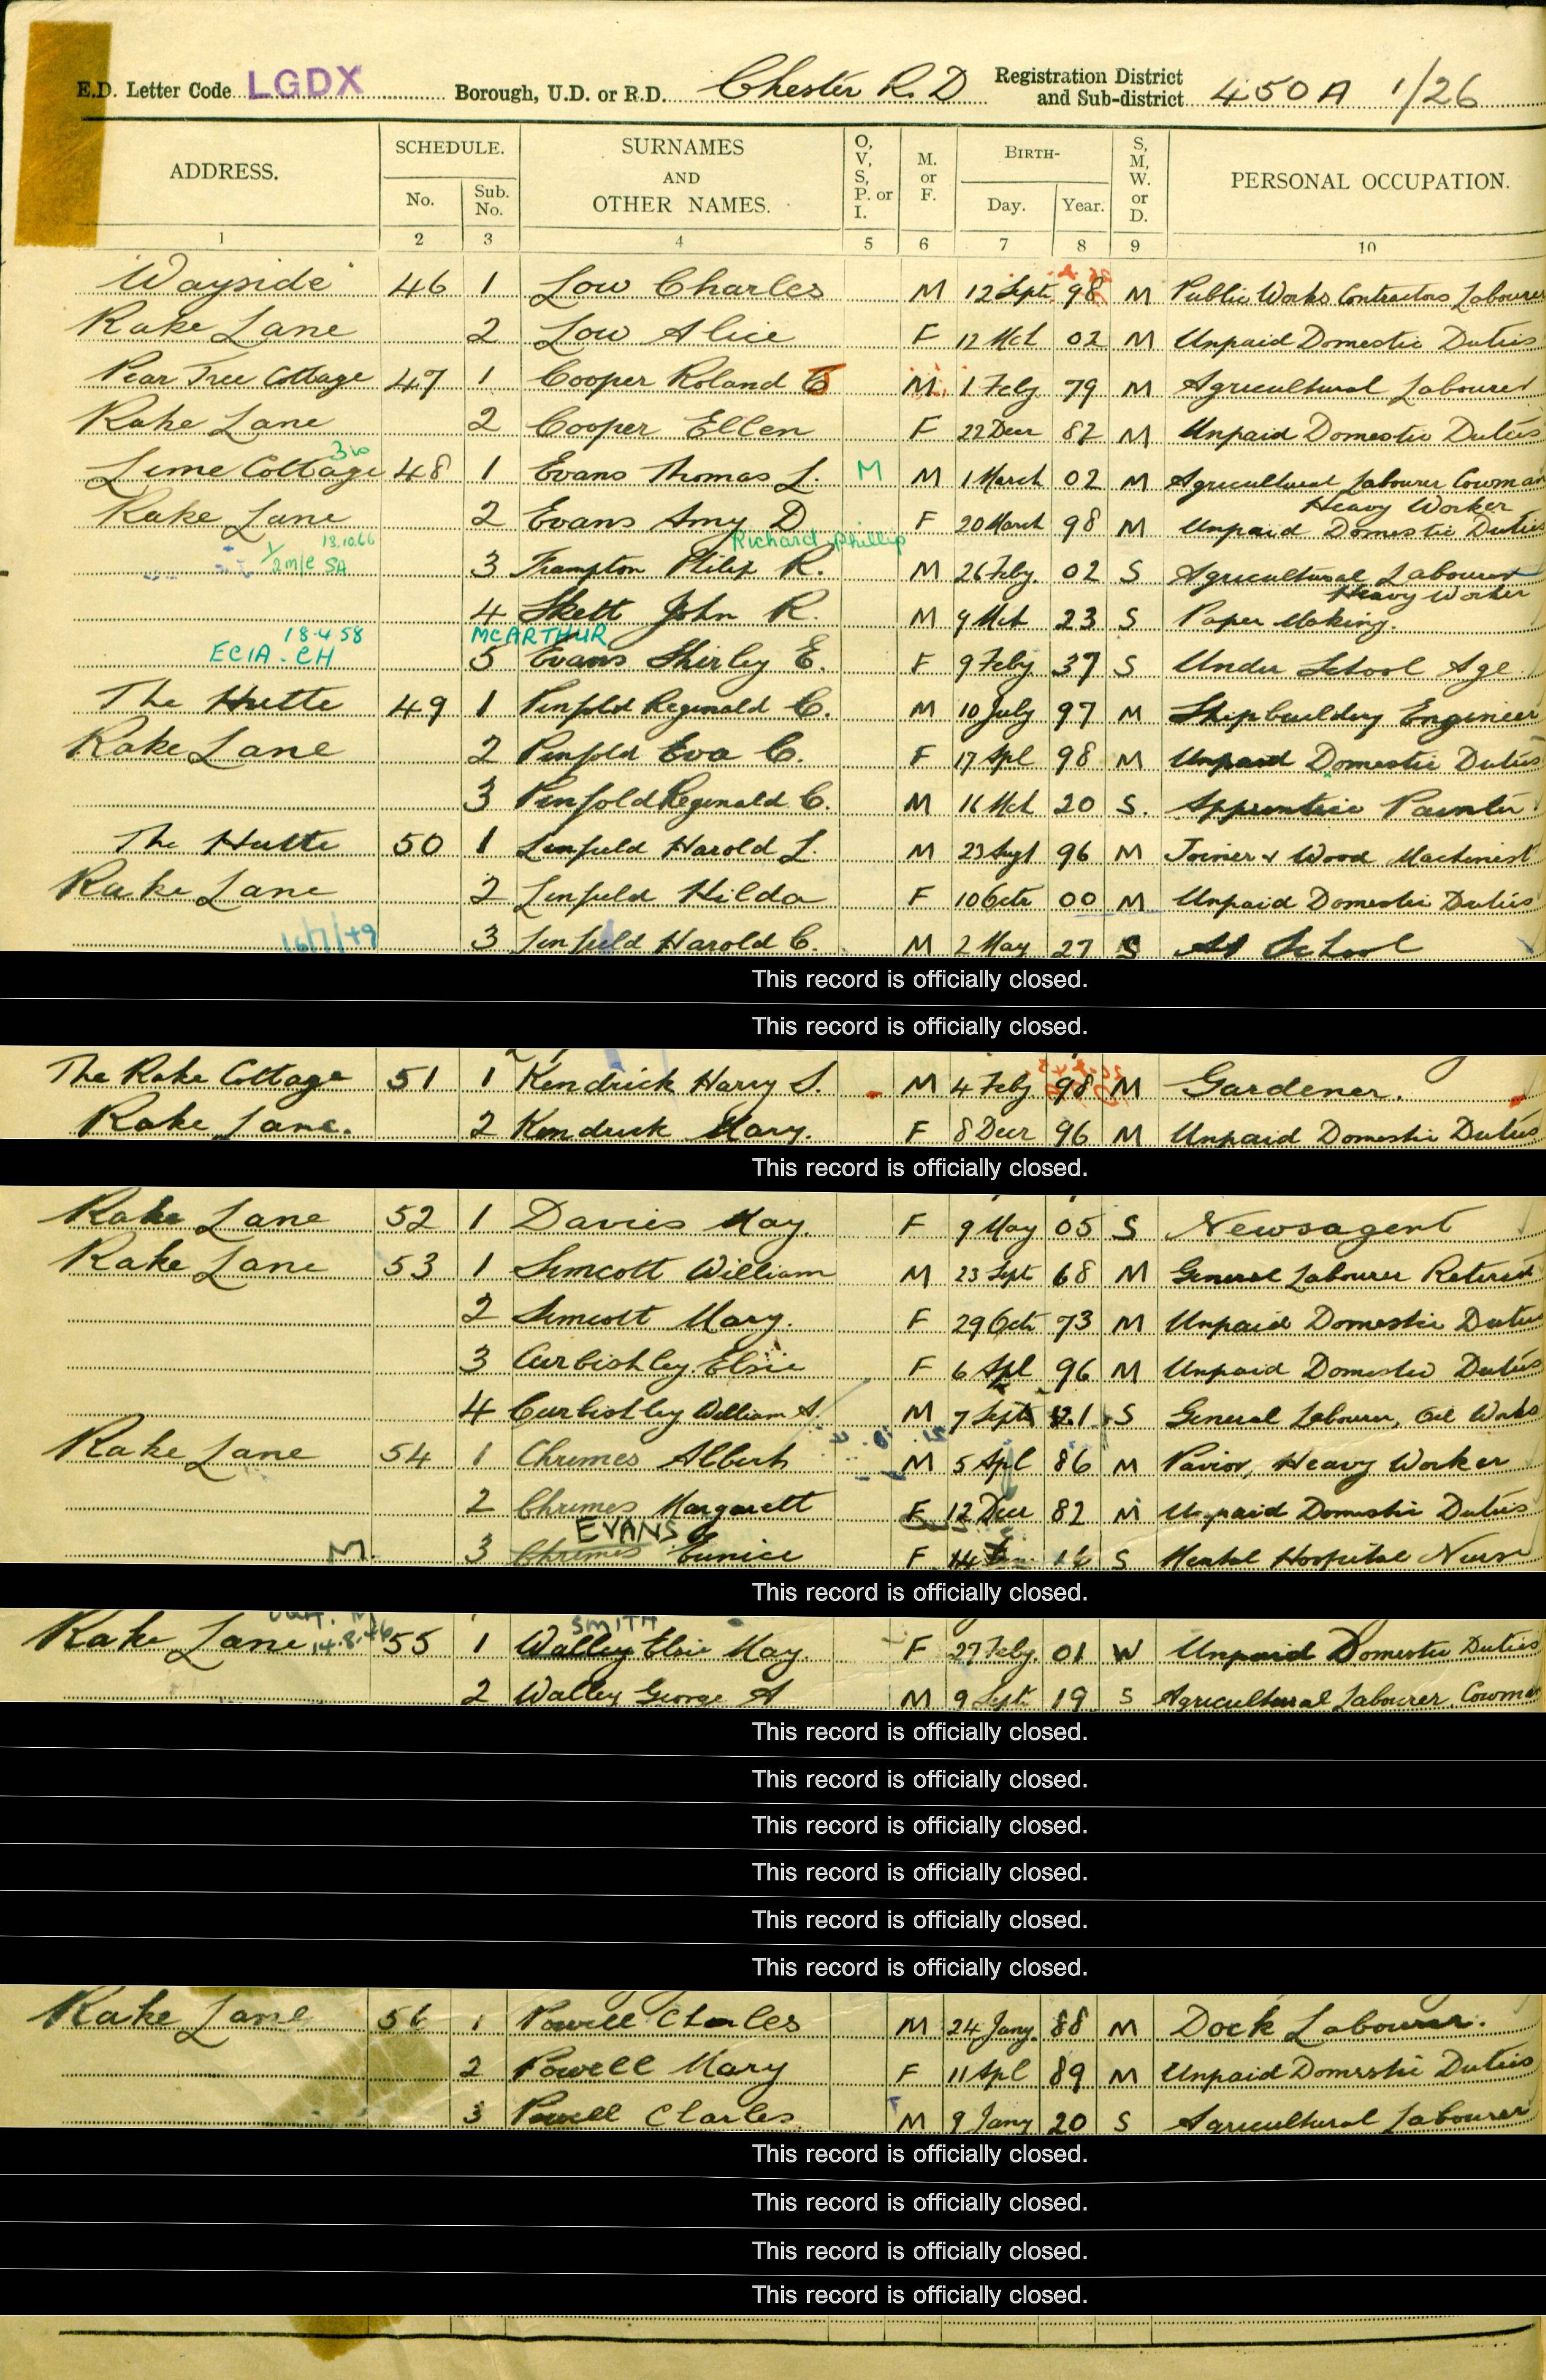 E.D. Letter Code LGDX Borough, U.D. or R.D. Chester R.D Registration District and Sub-district 450A 1/26
ADDRESS. SCHEDULE. No. Sub. No. SURNAMES AND OTHER NAMES. O, V, S, P. or I. M. or F. BIRTH- Day. Year. S, M, W. or D. PERSONAL OCCUPATION.
1 2 3 4 5 6 7 8 9 10
"Wayside" 46 1 Low Charles M 12 Sept 98 M Public Works Contractors Labourer
Rake Lane 2 Low Alice F 12 Mch 02 M Unpaid Domestic Duties
Pear Tree Cottage 47 1 Cooper Roland C M 1 Feby 79 M Agricultural Labourer
Rake Lane 2 Cooper Ellen F 22 Decr 82 M Unpaid Domestic Duties
Lime Cottage 48 1 Evans Thomas L. M M 1 March 02 M Agricultural Labourer Cowman
Heavy Worker
Rake Lane 2 Evans Amy D F 20 March 98 M Unpaid Domestic Duties
Richard Phillip
13.10.66
3 Frampton Philip R. M 26 Feby. 02 S Agricultural Labourer
Heavy Worker
4 Skett John R. M 9 Mch 23 S Paper Making.
18.4.58 MCARTHUR
ECIA. CH 5 Evans Shirley E. F 9 Feby 37 S Under School Age
The Hutte 49 1 Penfold Reginald C. M 10 July 97 M Shipbuilding Engineer
Rake Lane 2 Penfold Eva C. F 17 Apl 98 M Unpaid Domestic Duties
3 Penfold Reginald C. M 16 Mch 20 S. Apprentice Painter
The Hutte 50 1 Linfield Harold L. M 23 Sept 96 M Joiner & Wood Machinist
Rake Lane 2 Linfield Hilda F 10 Octr 00 M Unpaid Domestic Duties
16/7/49 3 Linfield Harold C. M 2 May 27 S At School
This record is officially closed.
This record is officially closed.
The Rake Cottage 51 1 Kendrick Harry S. M 4 Feby 98 M Gardener.
Rake Lane. 2 Kendrick Mary. F 8 Decr 96 M Unpaid Domestic Duties
This record is officially closed.
Rake Lane 52 1 Davies May. F 9 May 05 S Newsagent
Rake Lane 53 1 Simcott William M 23 Sept 68 M General Labourer Retired
2 Simcott Mary. F 29 Octr 73 M Unpaid Domestic Duties
3 Curbishley Elsie F 6 Apl 96 M Unpaid Domestic Duties
4 Curbishley William A. M 7 Sept 21 S General Labourer, Oil Works
Rake Lane 54 1 Chrimes Albert M 5 Apl 86 M Pavior, Heavy Worker
2 Chrimes Margarett F 12 Decr 82 M Unpaid Domestic Duties
EVANS
M. 3 Chrimes Eunice F 14 16 S Mental Hospital Nurse
This record is officially closed.
SMITH
Rake Lane 14.8.46 55 1 Walley Elsie May. F 27 Feby. 01 W Unpaid Domestic Duties
2 Walley George A M 9 Sept 19 S Agricultural Labourer. Cowman
This record is officially closed.
This record is officially closed.
This record is officially closed.
This record is officially closed.
This record is officially closed.
This record is officially closed.
Rake Lane 56 1 Powell Charles M 24 Jany. 88 M Dock Labourer.
2 Powell Mary F 11 Apl 89 M Unpaid Domestic Duties
3 Powell Charles M 9 Jany 20 S Agricultural Labourer
This record is officially closed.
This record is officially closed.
This record is officially closed.
This record is officially closed.